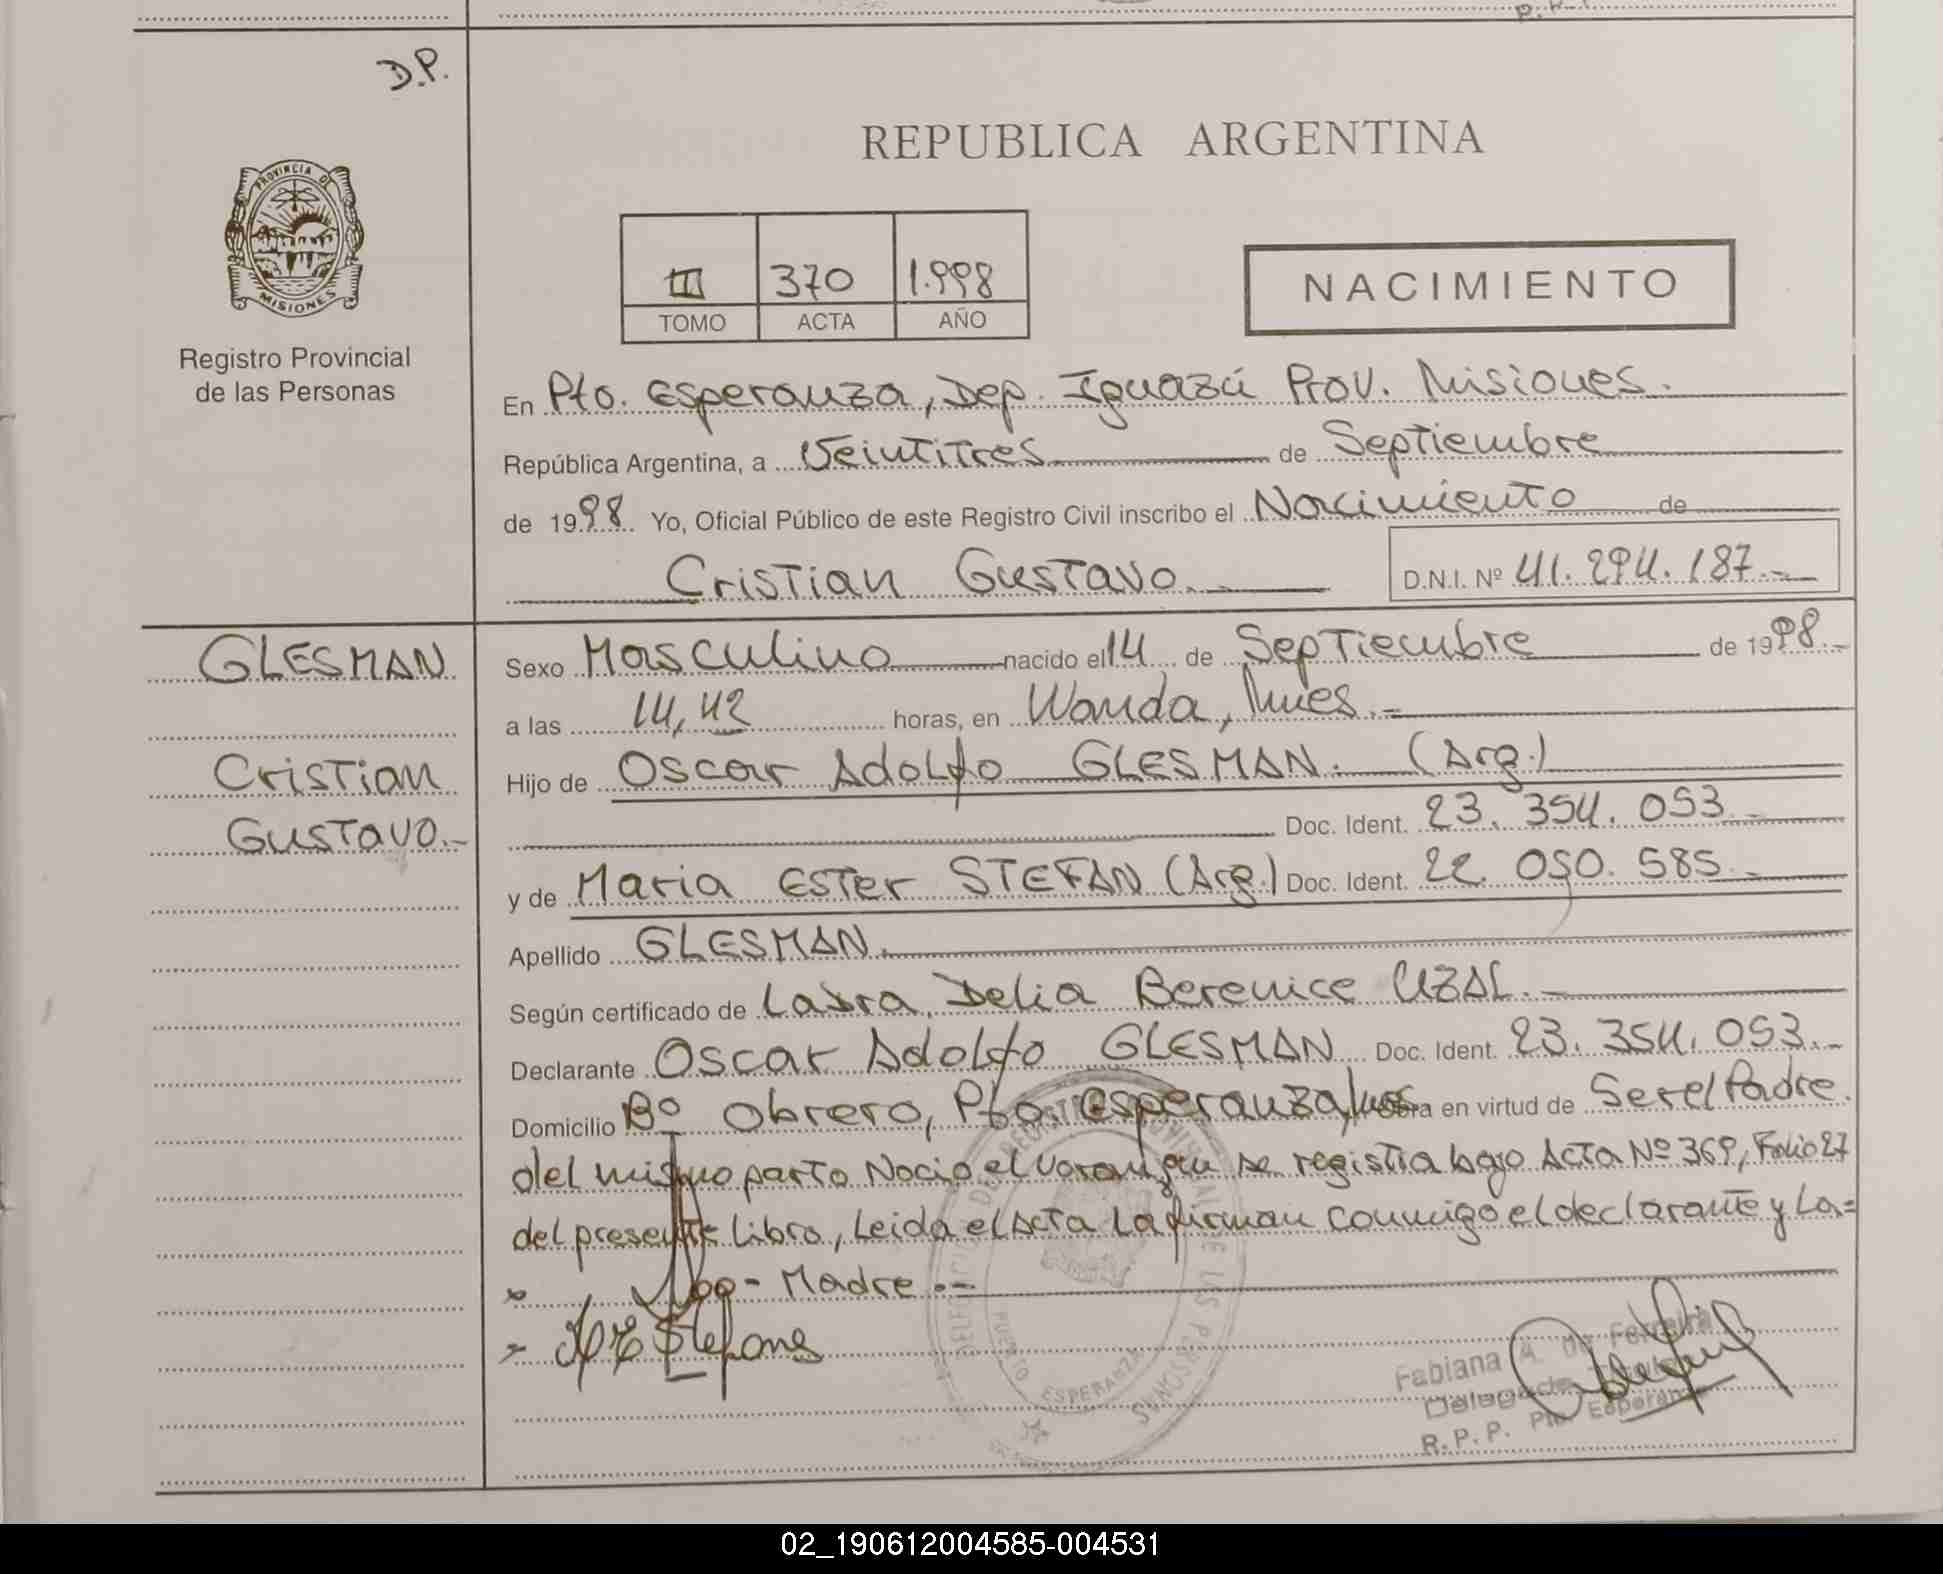 D.P.
PROVINCIA DE
MISIONES
Registro Provincial
de las Personas
REPUBLICA ARGENTINA
III 370 1.998
TOMO ACTA AÑO
NACIMIENTO
En Pto. Esperanza, Dep. Iguazú Prov. Misiones.
República Argentina, a Veintitres de Septiembre
de 1998. Yo, Oficial Público de este Registro Civil inscribo el Nacimiento de
Cristian Gustavo.-
D.N.I. Nº 41.294.187.-
GLESMAN
Cristian
Gustavo.-
Sexo Masculino nacido el 14 de Septiembre de 1998.-
a las 14,42 horas, en Wanda, Mnes.-
Hijo de Oscar Adolfo GLESMAN. (Arg.)
Doc. Ident. 23.354.053.-
y de Maria Ester STEFAN (Arg.) Doc. Ident. 22.050.585.-
Apellido GLESMAN.
Según certificado de Laura Delia Berenice UZAL.-
Declarante Oscar Adolfo GLESMAN Doc. Ident. 23.354.053.-
Domicilio Bº Obrero, Pto. Esperanza, Obra en virtud de Ser el Padre.
del mismo parto Nacio el Varon que se registra bajo Acta Nº 369, Folio 27
del presente Libro, Leida el Acta La firman conmigo el declarante y La=
Madre.-
M E Stefans
DELEGACION DEL REGISTRO PROVINCIAL DE LAS PERSONAS
PUERTO ESPERANZA
Fabiana A. De Ferreira
Delegada Titular
R.P.P. Pto. Esperanza
02_190612004585-004531